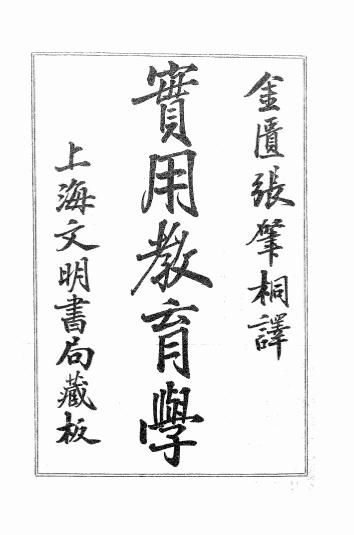 金匱張肇桐譯
實用教育學
上海文明書局藏板